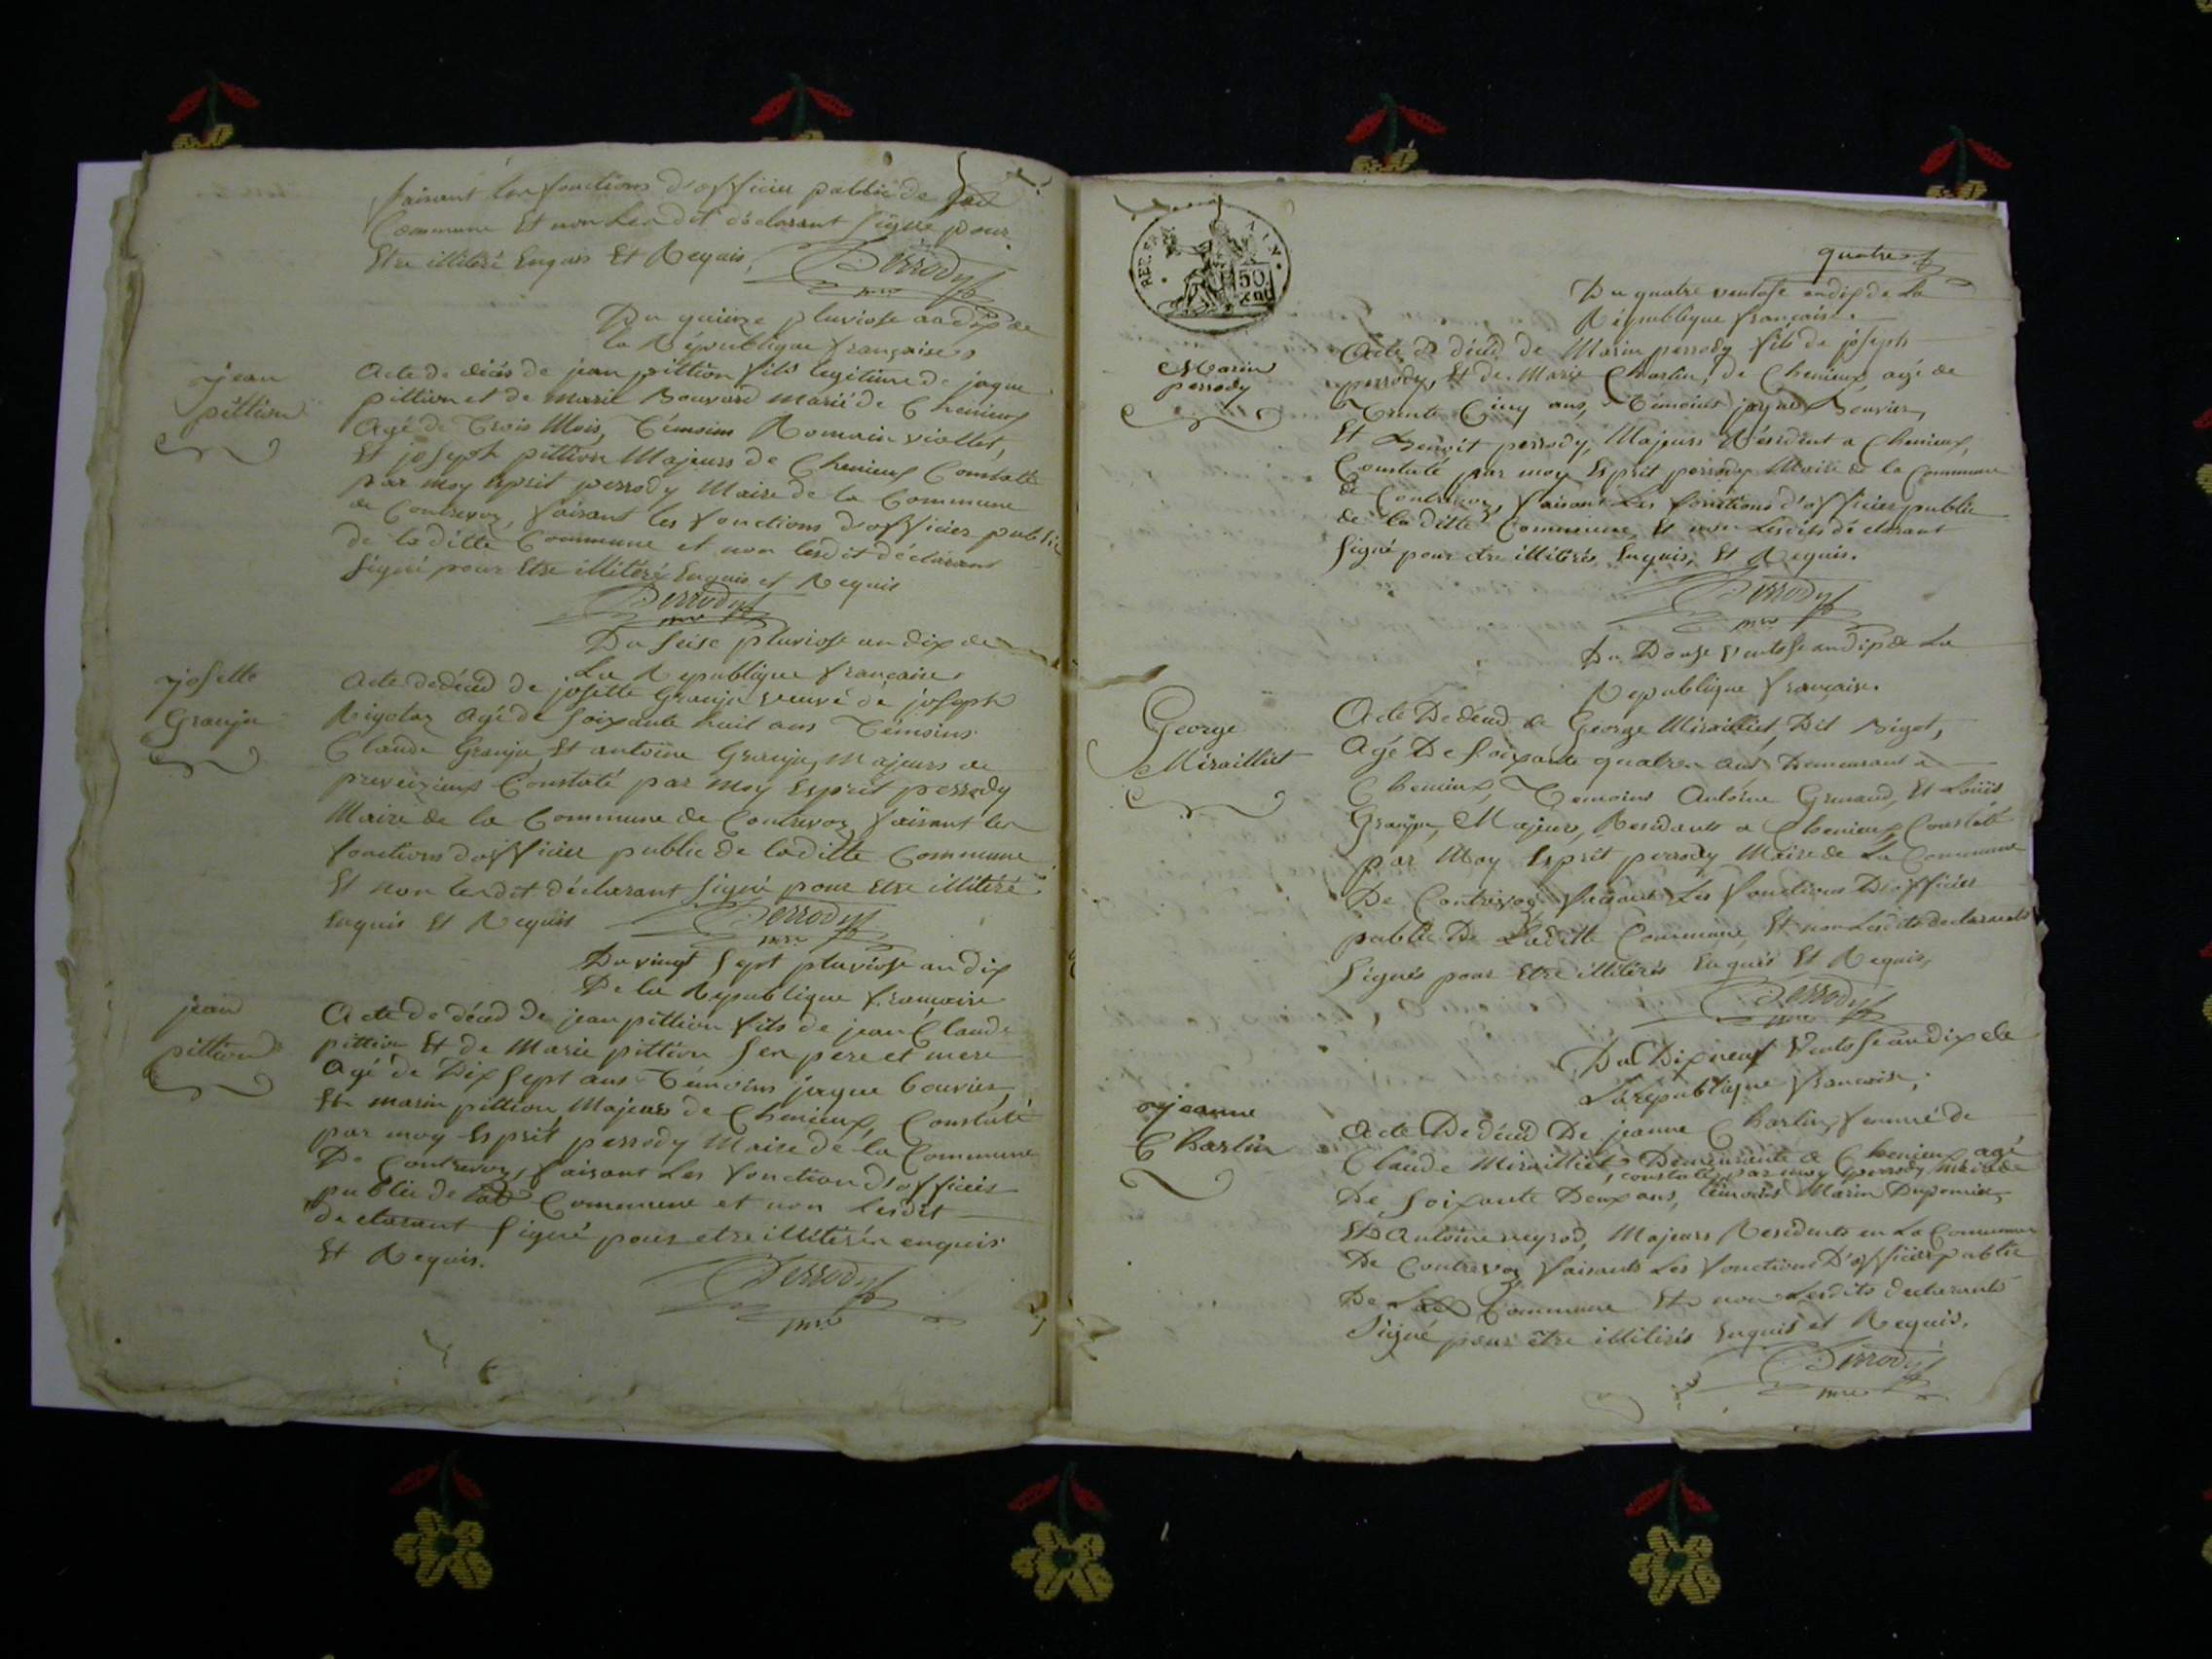 faisant les fonctions d'officier public de lad
Commune Et non Lesdit déclarant signé pour
Etre illitéré Enquis Et Requis,
Perrody
mre
Du quinze pluviose an dix de
la République française
jean
pittion
Acte de décés de jean pittion fils legitime de jaque
pittion et de marie Bouvard marié de Chenieux
Agé de Trois Mois, Témoins Romain viollet,
Et joseph pittion Majeurs de Chenieux Constaté
par moy Esprit perrody Maire de la Commune
de Contrevoz, faisant les fonctions d'officier public
de laditte Commune et non lesdit déclarant
signé pour Etre illitéré Enquis et Requis
Perrody
mre
Du seise pluviose an dix de
La Republique francaise
josette
Granju
Acte de déced de josette Granju veuve de joseph
Rigotaz Agé de soixante huit ans Témoins
Claude Granju, Et antoine Granju, Majeurs de
preveizieux Constaté par moy Esprit perrody
Maire de la Commune de Contrevoz faisant les
fonctions d'officier public de laditte Commune
Et non lesdit déclarant signé pour Etre illitéré
Enquis Et Requis
Perrody
mre
Du vingt sept pluviose an dix
De la Republique francaise
jean
pittion
Acte de déced De jean pittion fils de jean Claude
pittion Et de Marie pittion ses pere et mere
Agé de Dix sept ans Témoins jaque bouvier,
Et marin pittion Majeurs de Chenieux, Constaté
par moy Esprit perrody Maire de la Commune
De Contrevoz, faisant Les fonction d'officier
public de lad Commune et non Lesdit
declarant signé pour etre illitérés enquis
Et Requis.
Perrody
mre
REP. FRA. AIN.
50
quatre
Du quatre ventose an dix de La
République francaise.
Marin
perrody
Acte de déced de Marin perrody fils de joseph
perrody, Et de Marie Charlin, de Chenieux agé de
Trente Cinq ans, Témoins jaque Bouvier,
Et Benoit perrody, Majeurs Résident a Chenieux,
Constaté par moy Esprit perrody Maire de la Commune
de Contrevoz, faisant Les fonctions d'officier public
de laditte Commune, Et non Lesdits déclarant
signé pour etre illitérés Enquis, Et Requis.
Perrody
mre
Du Douse Ventose an dix de La
Republique francaise.
George
Miraillet
Acte De déced de George Mirailliet, Dit Bigot,
Agé De soixante quatre ans Demeurant a
Chenieux, Temoins Antoine Grenaud, Et Loüis
Granju, Majeurs, Residants a Chenieux Constaté
par Moy Esprit perrody Maire de La Commune
De Contrevoz faisant Les fonctions D'officier
public De Laditte Commune, Et non Lesdits declarants
signés pour Etre illitérés Enquis Et Requis,
Perrody
mre
Du Dix neuf Ventose an dix de
La republique francaise,
jeanne
Charlin
Acte De déced De jeanne Charlin, femme de
Claude Mirailliet, Demeurante a Chenieux, agé
, constaté par moy perrody Maire de
De soixante Deux ans, témoins Marin Duponnier,
Et Antoine neyrod, Majeurs Residents en La Commune
De Contrevoz faisants Les fonctions D'officier public
De Lad Commune Et non Lesdits declarants
signé pour être illitérés Enquis et Requis.
Perrody
mre